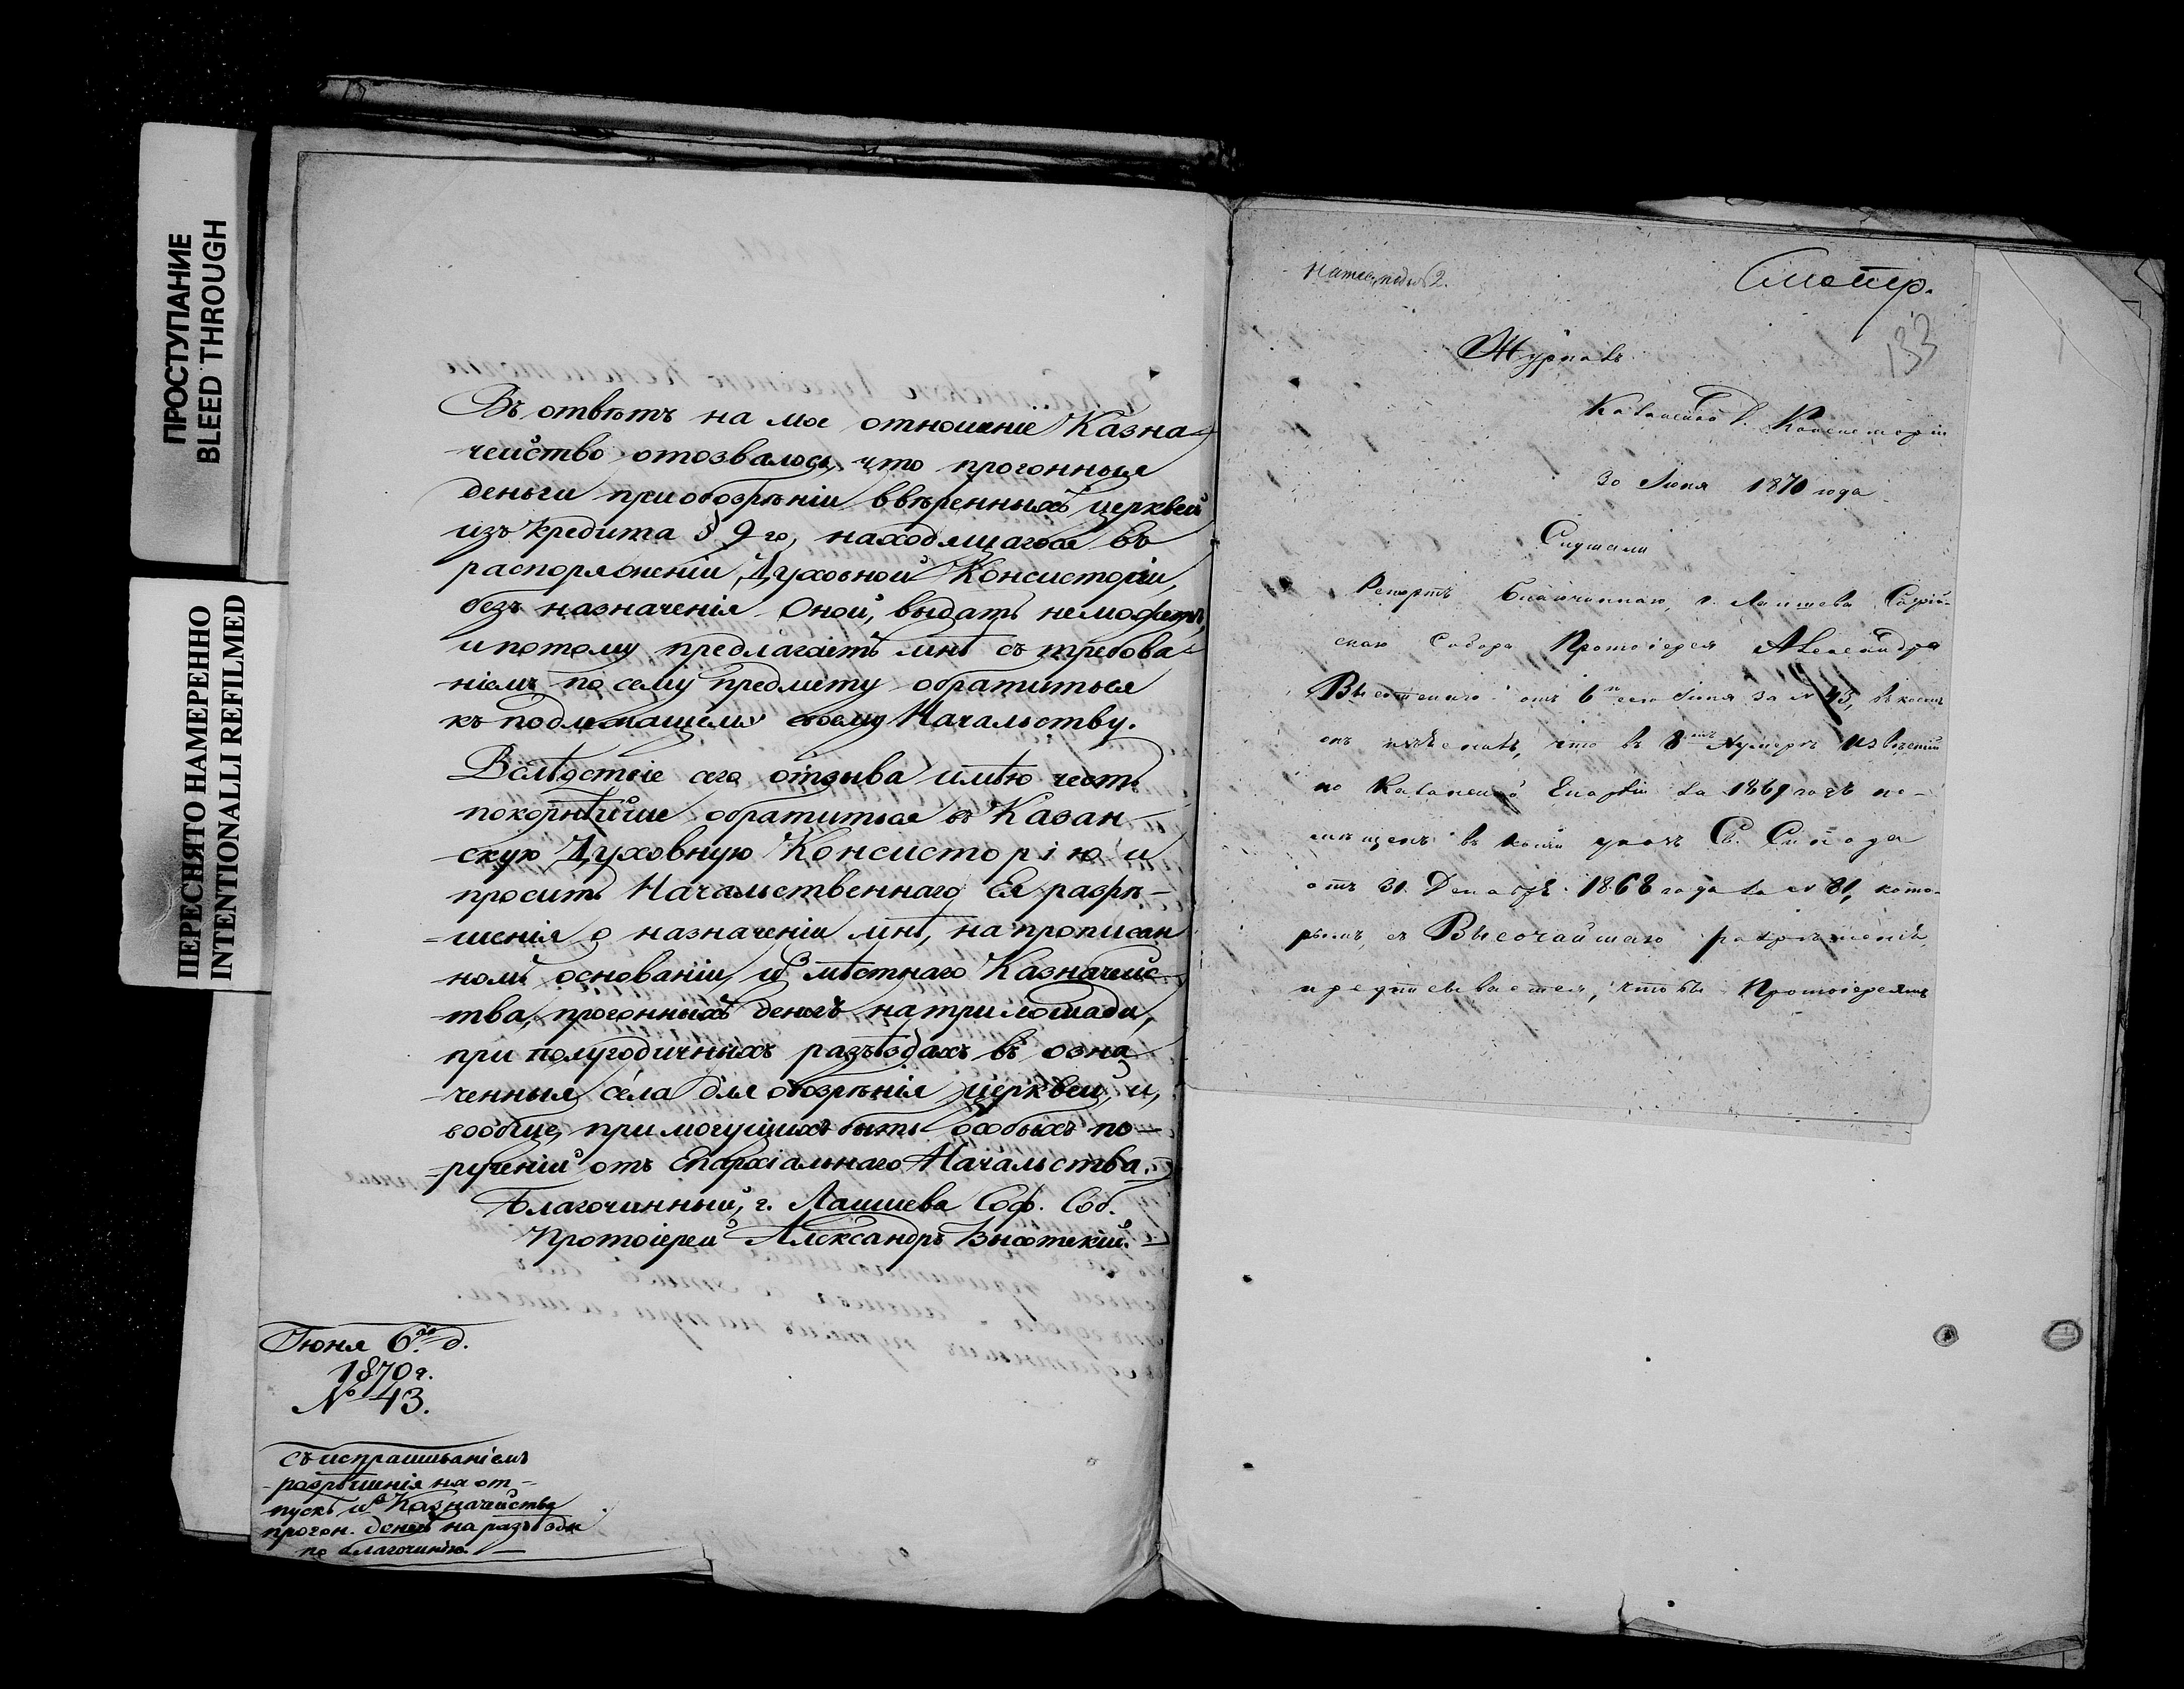 ПРОСТУПАНИЕ
BLEED THROUGH
ПЕРЕСНЯТО НАМЕРЕННО
INTENTIONALLI REFILMED
Въ отвѣтъ на мое отношеніе Казна-
чейство отозвалось, что прогонныя
деньги при обозрѣніи ввѣренныхъ церквей
изъ кредита § 9 го, находящагося въ
распоряженіи Духовной Консисторіи,
безъ назначенія Оной, выдать не можетъ,
и потому предлагаетъ мнѣ съ требова-
ніемъ по сему предмету обратиться
къ подлежащему своему Начальству.
Вслѣдствіе сего отзыва имѣю честь
покорнѣйше обратиться въ Казан-
скую Духовную Консисторію и
просить Начальственнаго Ея разрѣ-
-шенія о назначеніи мнѣ, на прописан
номъ основаніи, изъ мѣстнаго Казначейс-
тва, прогонныхъ денегъ на три лошади,
при полугодичныхъ разъѣздахъ въ озна
-ченныя сёла для обозрѣнія церквей, и,
вообще, при могущихъ быть особыхъ по-
-рученій отъ Епархіальнаго Начальства.
Благочинный, г. Лаишева Соф. Соб.
Протоіерей Александръ Высотскій.
Іюня 6го д.
1870 г.
№ 43.
съ испрашиваніемъ
разрѣшенія на от-
пускъ изъ Казначейства
прогон. денегъ на разъѣзды
по благочинію.
Смотр.
133
Журналъ
Казанской Д. Консисторіи
30 Іюня 1870 года
Слушали
Репортъ Благочиннаго, г. Лаишева Софій-
скаго Собора Протоіерея Александра
Высотскаго отъ 6го сего Іюня за № 43, въ коемъ
онъ что въ 8мъ Нумерѣ Извѣстій
по Казанской Епархіи за 1869 годъ по-
мѣщенъ въ копіи указъ Св. Синода
отъ 31 Декабря 1868 года за № 81, кото-
рымъ, съ Высочайшаго разрѣшенія,
предписывается, чтобы Протоіереямъ